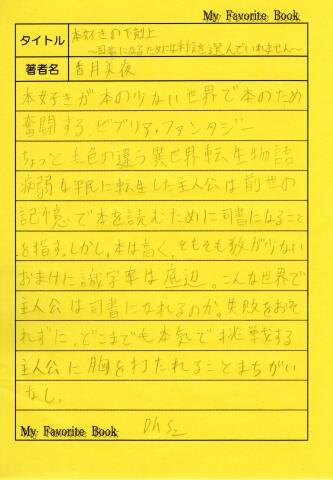 My Favorite Book
タイトル
本好きの下剋上
～司書になるためには手段を選んでいられません～
著者名
香月美夜
本好きが本の少ない世界で本のため
奮闘する、ビブリア・ファンタジー
ちょっと毛色の違う異世界転生物語
病弱な平民に転生した主人公は前世の
記憶で本を読むために司書になること
を指す。しかし、本は高く、そもそも数が少ない
おまけに識字率は底辺。こんな世界で
主人公は司書になれるのか。失敗をおそ
れずに、どこまでも本気で挑戦する
主人公に胸を打たれることまちがい
なし。
My Favorite Book